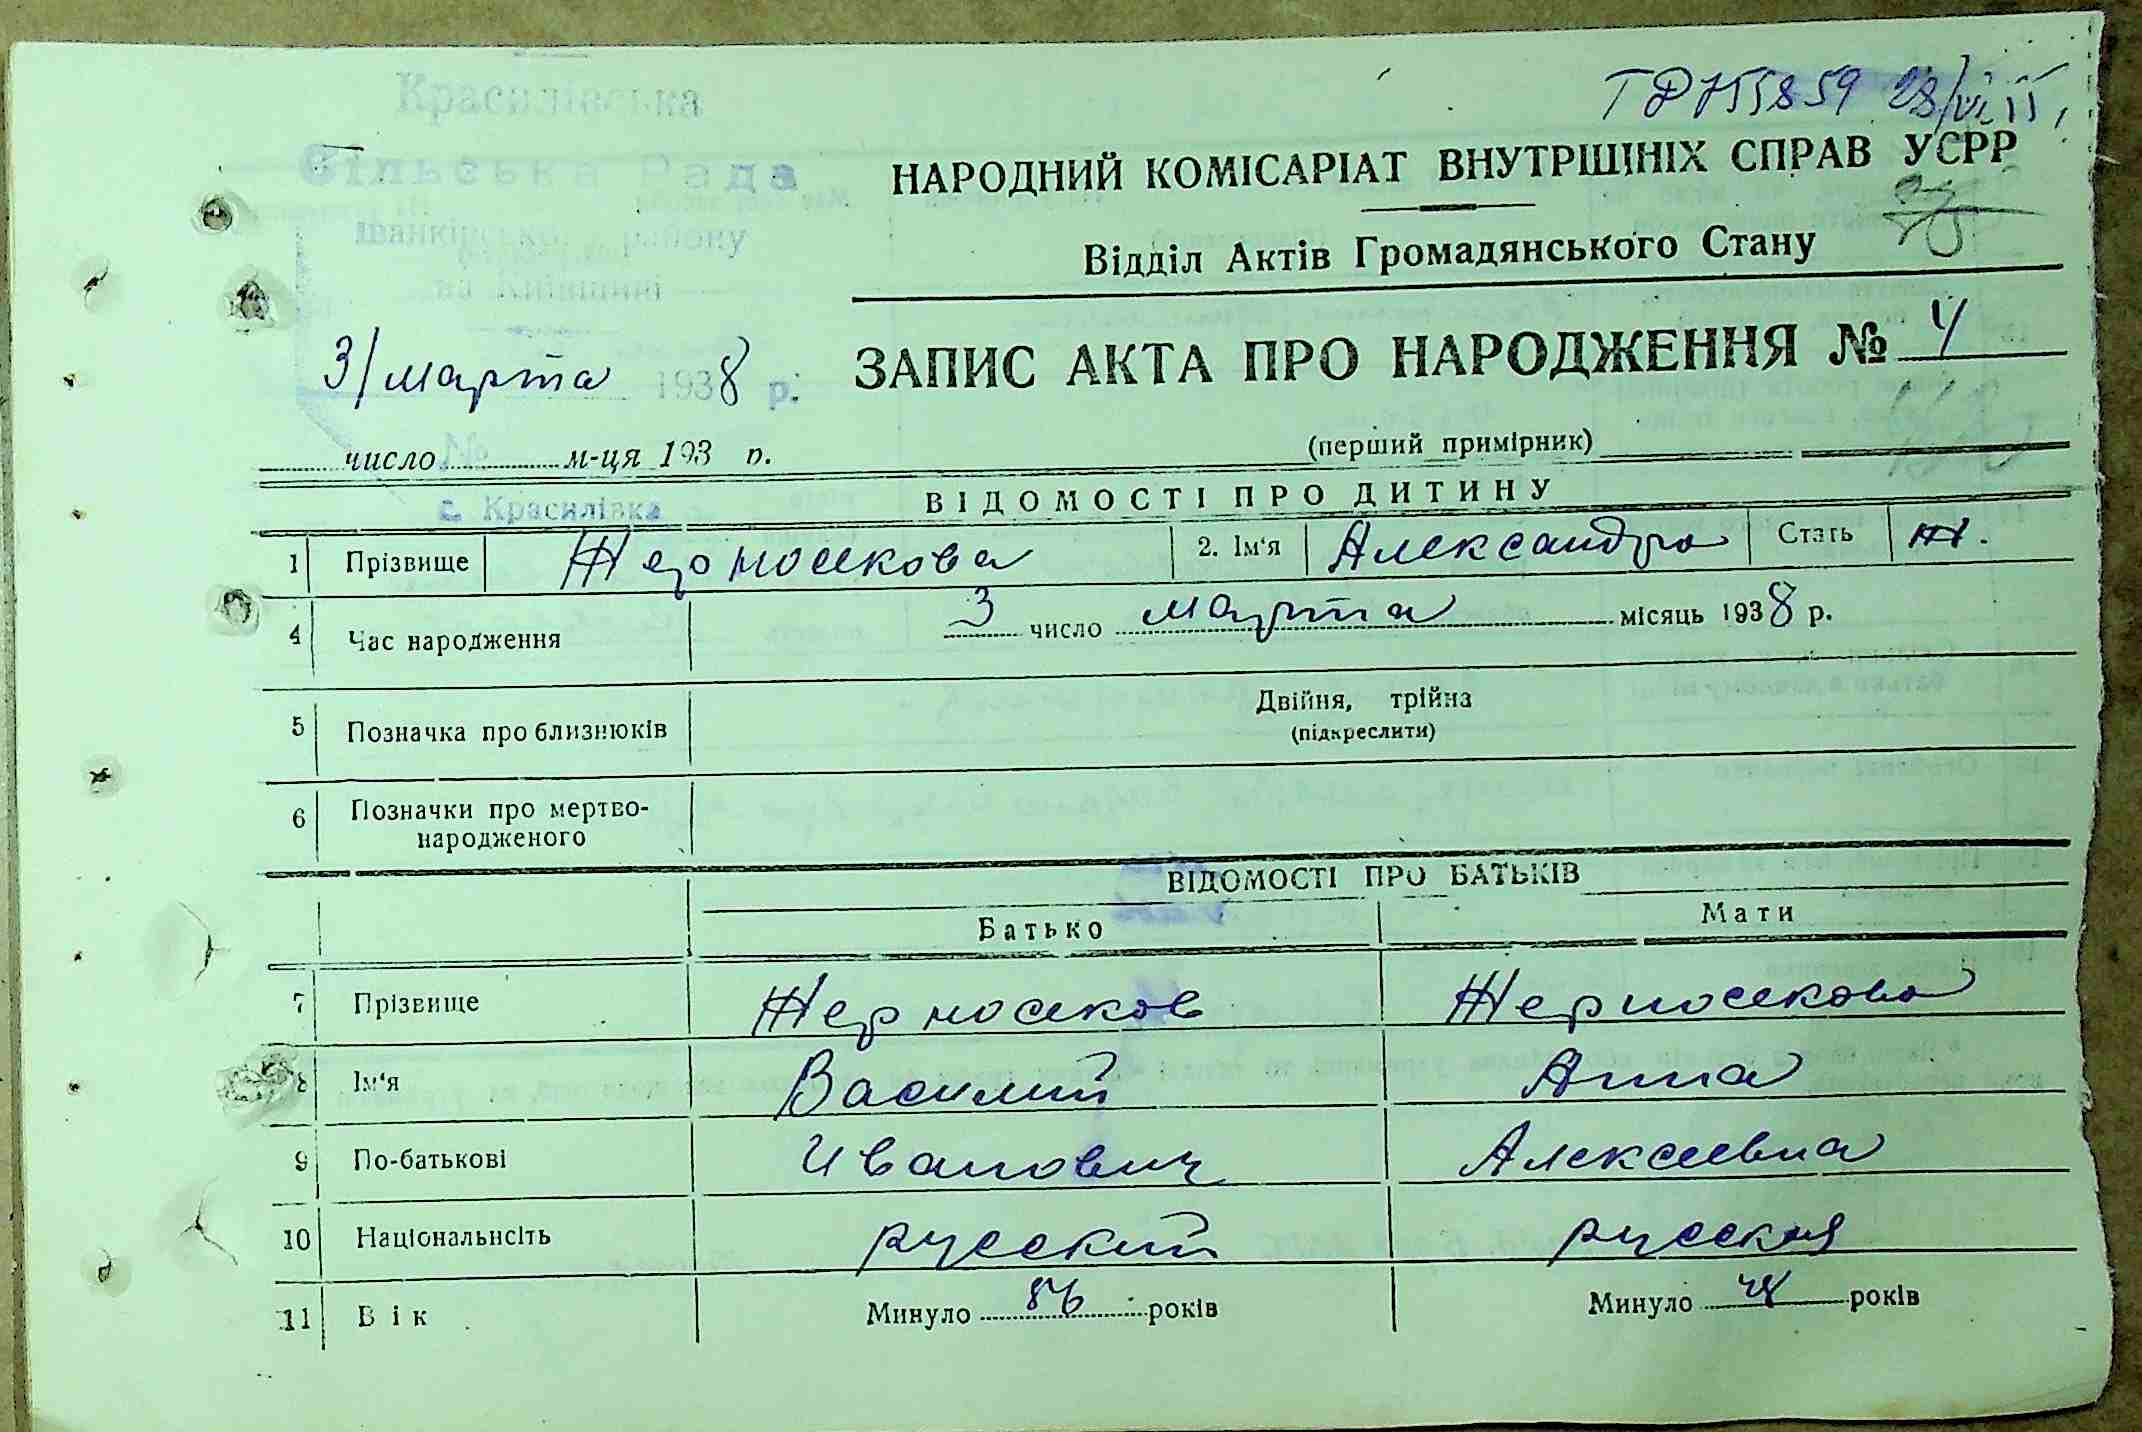 Красилівська
Сільська Рада
Іванківського району
на Київщині
НАРОДНИЙ КОМІСАРІАТ ВНУТРІШНІХ СПРАВ УСРР
Відділ Актів Громадянського Стану
3/марта 1938 р.
ЗАПИС АКТА ПРО НАРОДЖЕННЯ № 4
число м-ця 193 р.
(перший примірник)
с. Красилівка
ВІДОМОСТІ ПРО ДИТИНУ
1 Прізвище Жерносекова 2. Ім'я Александра Стать ж.
4 Час народження 3 число марта місяць 1938 р.
5 Позначка про близнюків Двійня, трійна
(підкреслити)
6 Позначки про мертво-
народженого
ВІДОМОСТІ ПРО БАТЬКІВ
Батько Мати
7 Прізвище Жерносеков Жерносекова
8 Ім'я Василий Анна
9 По-батькові Иванович Алексеевна
10 Національнсіть русский русская
11 Вік Минуло років Минуло років